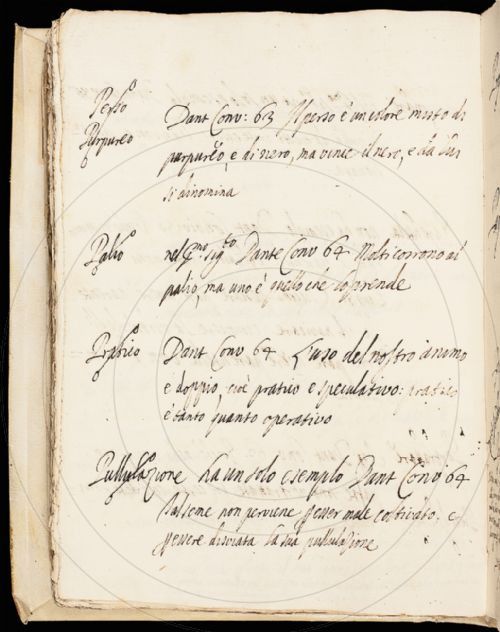 Perso
Purpureo
Dant Conv: 63 Il perso è un colore misto di
purpureo, e di nero, ma vince il nero, e da lui
si dinomina
Palio
nel pmo. sigto. Dante Conv 64 Molti corrono al
palio, ma uno è quello che lo prende
Pratico
Dant Conv 64 L'uso del nostro animo
e doppio, cioè pratico e speculativo: pratico
è tanto quanto operativo
Pullulazione ha un solo esemplo Dant Conv 64
Sal seme non perviene p esser male coltivato, e
p essere disviata la sua pullulazione